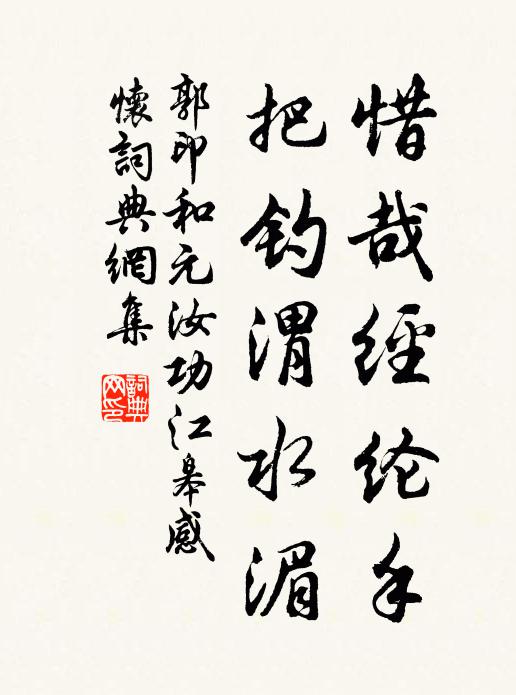 惜哉經纶手
把钓渭水湄
郭印和元汝功江皋感
懷詞典網集
詞典
网印